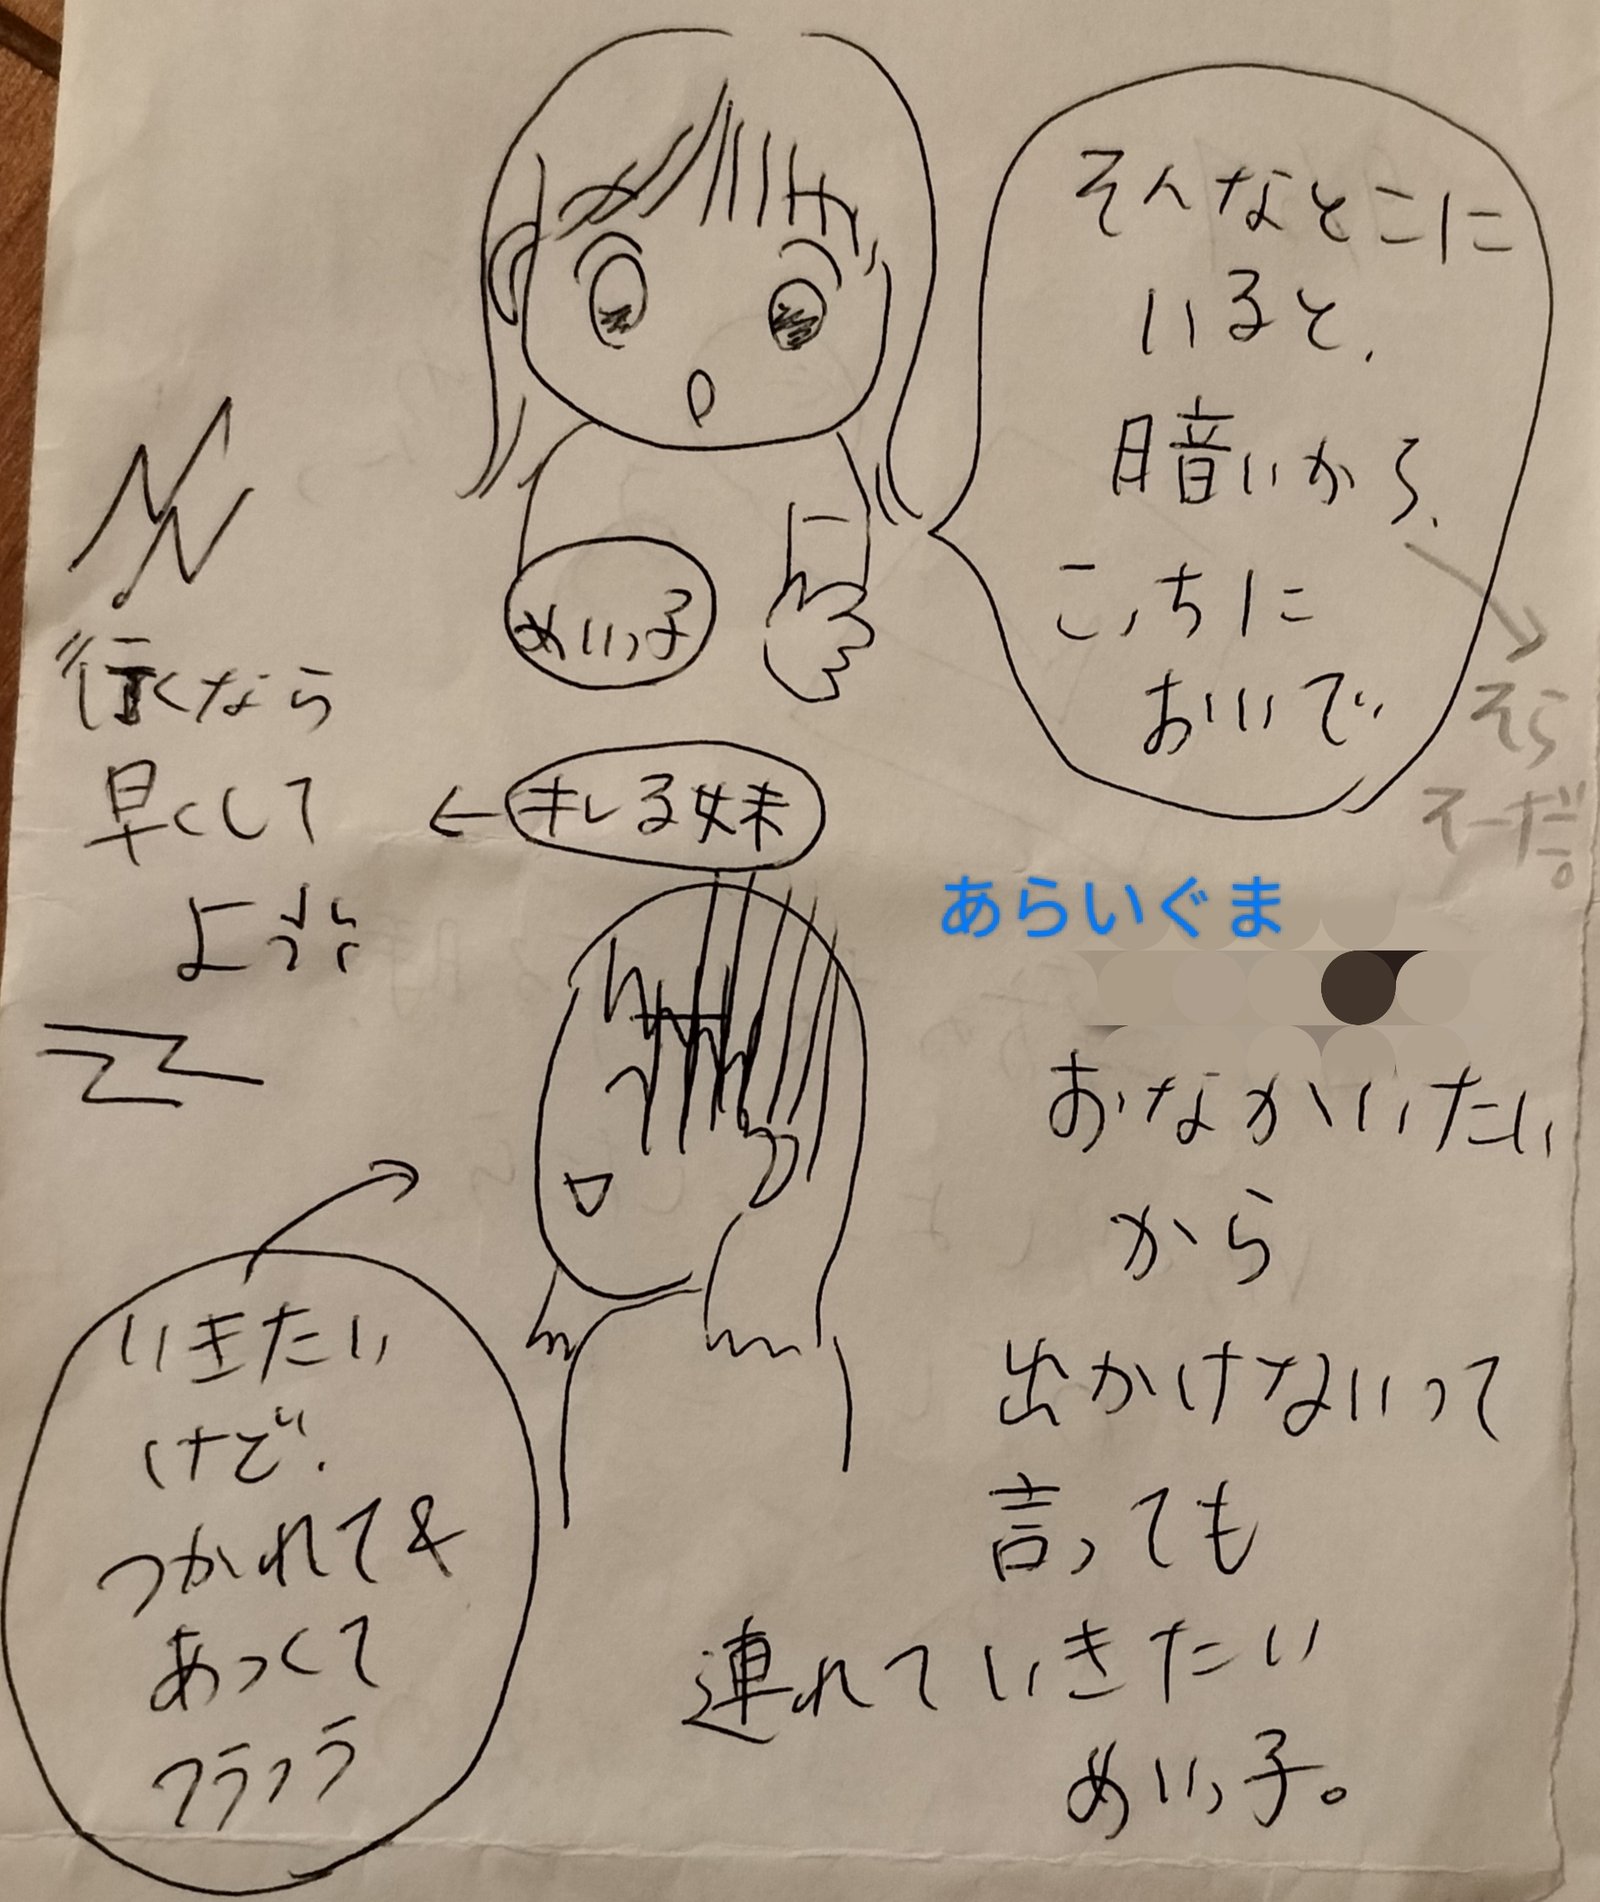 そんなとこに
いると、
暗いから、
こっちに
おいで
そら
そーだ。
めいっ子
行くなら
早くして
よ
キレる妹
あらいぐま
おなかいたい
から
出かけないって
言っても
連れていきたい
めいっ子。
いきたい
けど、
つかれて&
あつくて
フラフラ